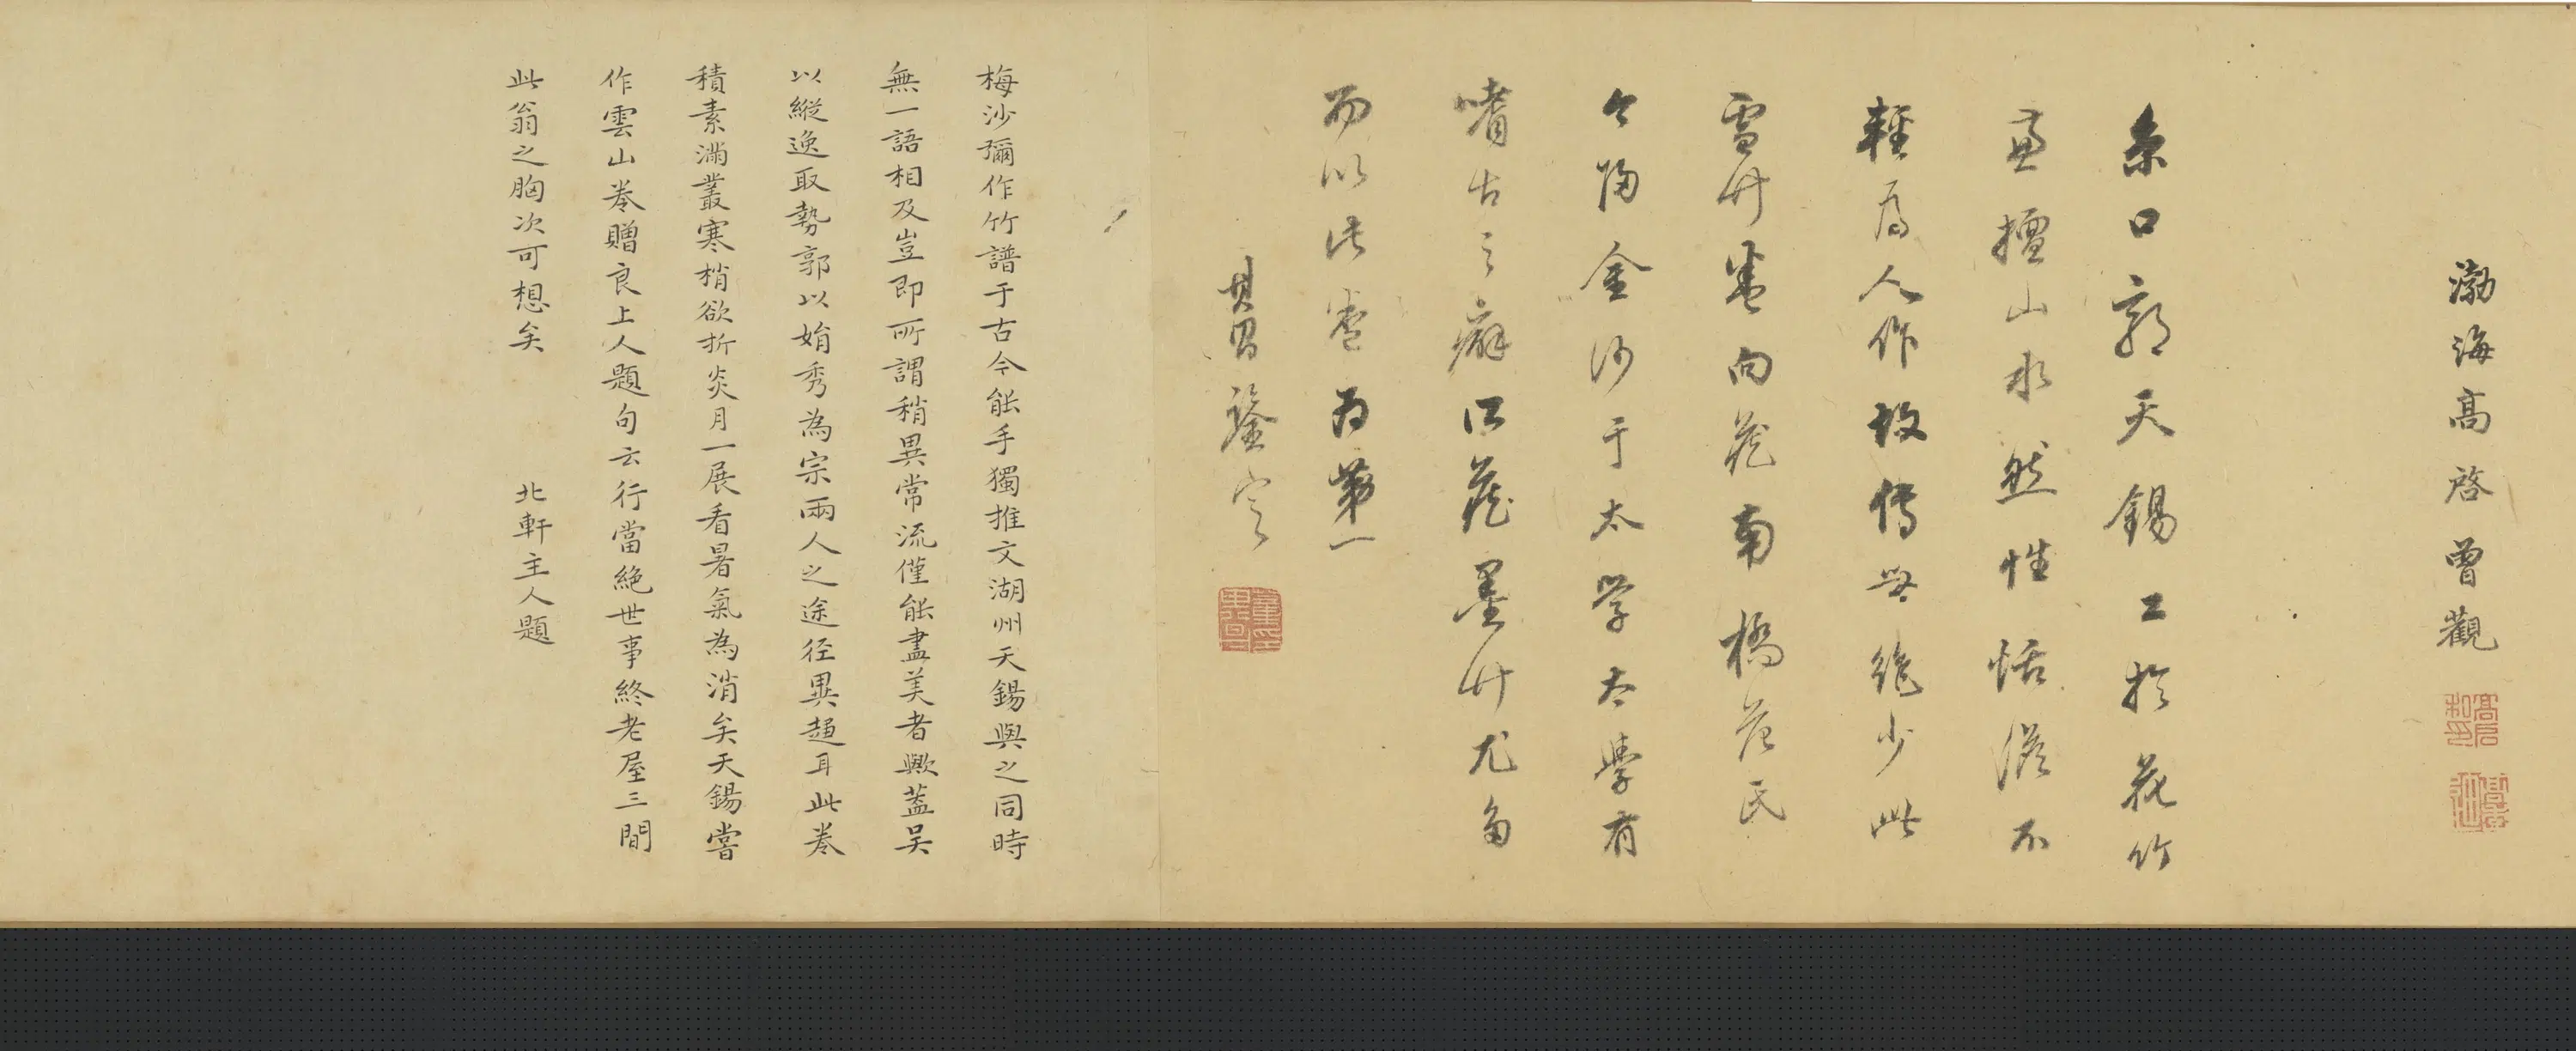 渤海高啓曾觀
京口郭天錫工於花竹
兼擅山水然性恬澹不
輕為人作故傳世絕少此
雪竹卷向藏南橋范氏
今歸金沙于太學太學有
嗜古之癖所藏墨竹尤多
而以此卷為第一
其昌鑒定
梅沙彌作竹譜于古今能手獨推文湖州天錫與之同時
無一語相及豈即所謂稍異常流僅能盡美者歟蓋吴
以縱逸取勢郭以娟秀為宗兩人之途徑異趨耳此卷
積素滿叢寒梢欲折炎月一展看暑氣為消矣天錫嘗
作雲山卷贈良上人題句云行當絶世事終老屋三間
此翁之胸次可想矣
北軒主人題